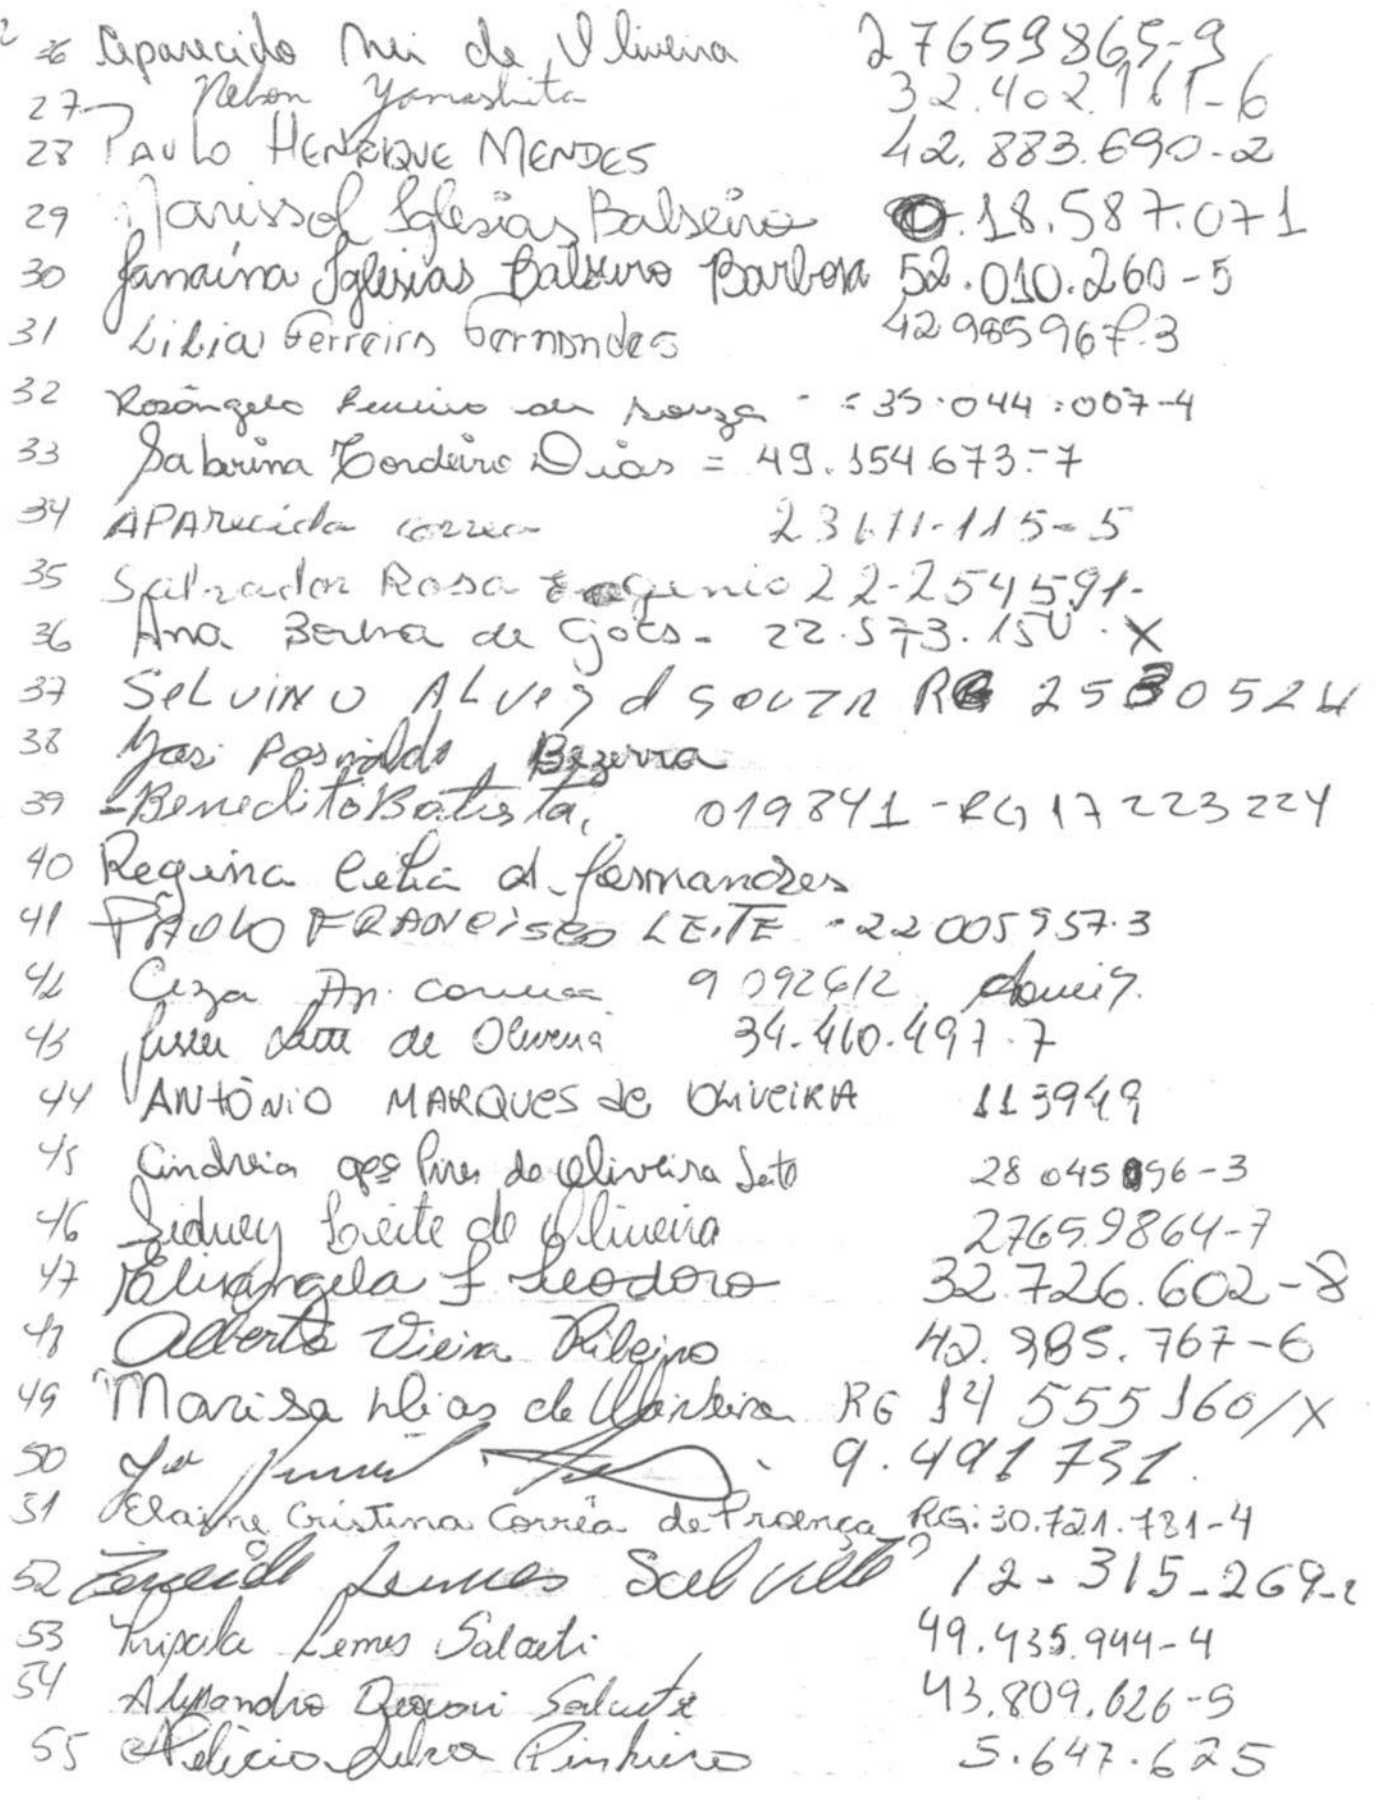 26 Aparecido Nei de Oliveira 27659865-9
27 Nelson Yamashita 32.402.161-6
28 PAULO HENRIQUE MENDES 42.883.690-2
29 Marissol Iglesias Balseiro 18.587.071
30 Janaína Iglesias Balseiro Barbosa 52.010.260-5
31 Lilia Ferreira Fernandes 42985967-3
32 Rosângela de souza = 35.044.007-4
33 Sabrina Cordeiro Dias = 49.154673-7
34 APArecida correa 23611-115-5
35 Salvador Rosa Eogenio 22-254591-
36 Ana de Goes - 22.573.150.X
37 SELVINO ALVES d SOUZA RG 2530524
38 Bezerra
39 - Benedito Batista, 019841 - RG 17223224
40 Regina Celia d. fernandes
41 PAOLO FRANCISCO LEITE - 22005957.3
42 Ap. correa 9092612
43 de Oliveira 34.460.497-7
44 ANTÔNIO MARQUES de OLIVEIRA 113949
45 Cindreia Pires de Oliveira 28045 96-3
46 Sidney Leite de Oliveira 27659864-7
47 Elisângela F Teodoro 32.726.602-8
48 Alberto Vieira Ribeiro 42.985.767-6
49 Marisa Dias de Oliveira RG 14 555 160/X
50 9.491731.
51 Elaine Cristina Corrêa de Proença RG: 30.721.781-4
52 Lemes 12-315-269-2
53 Lemes 49.435.944-4
54 43.809.626-5
55 Pinheiro 5.647.625